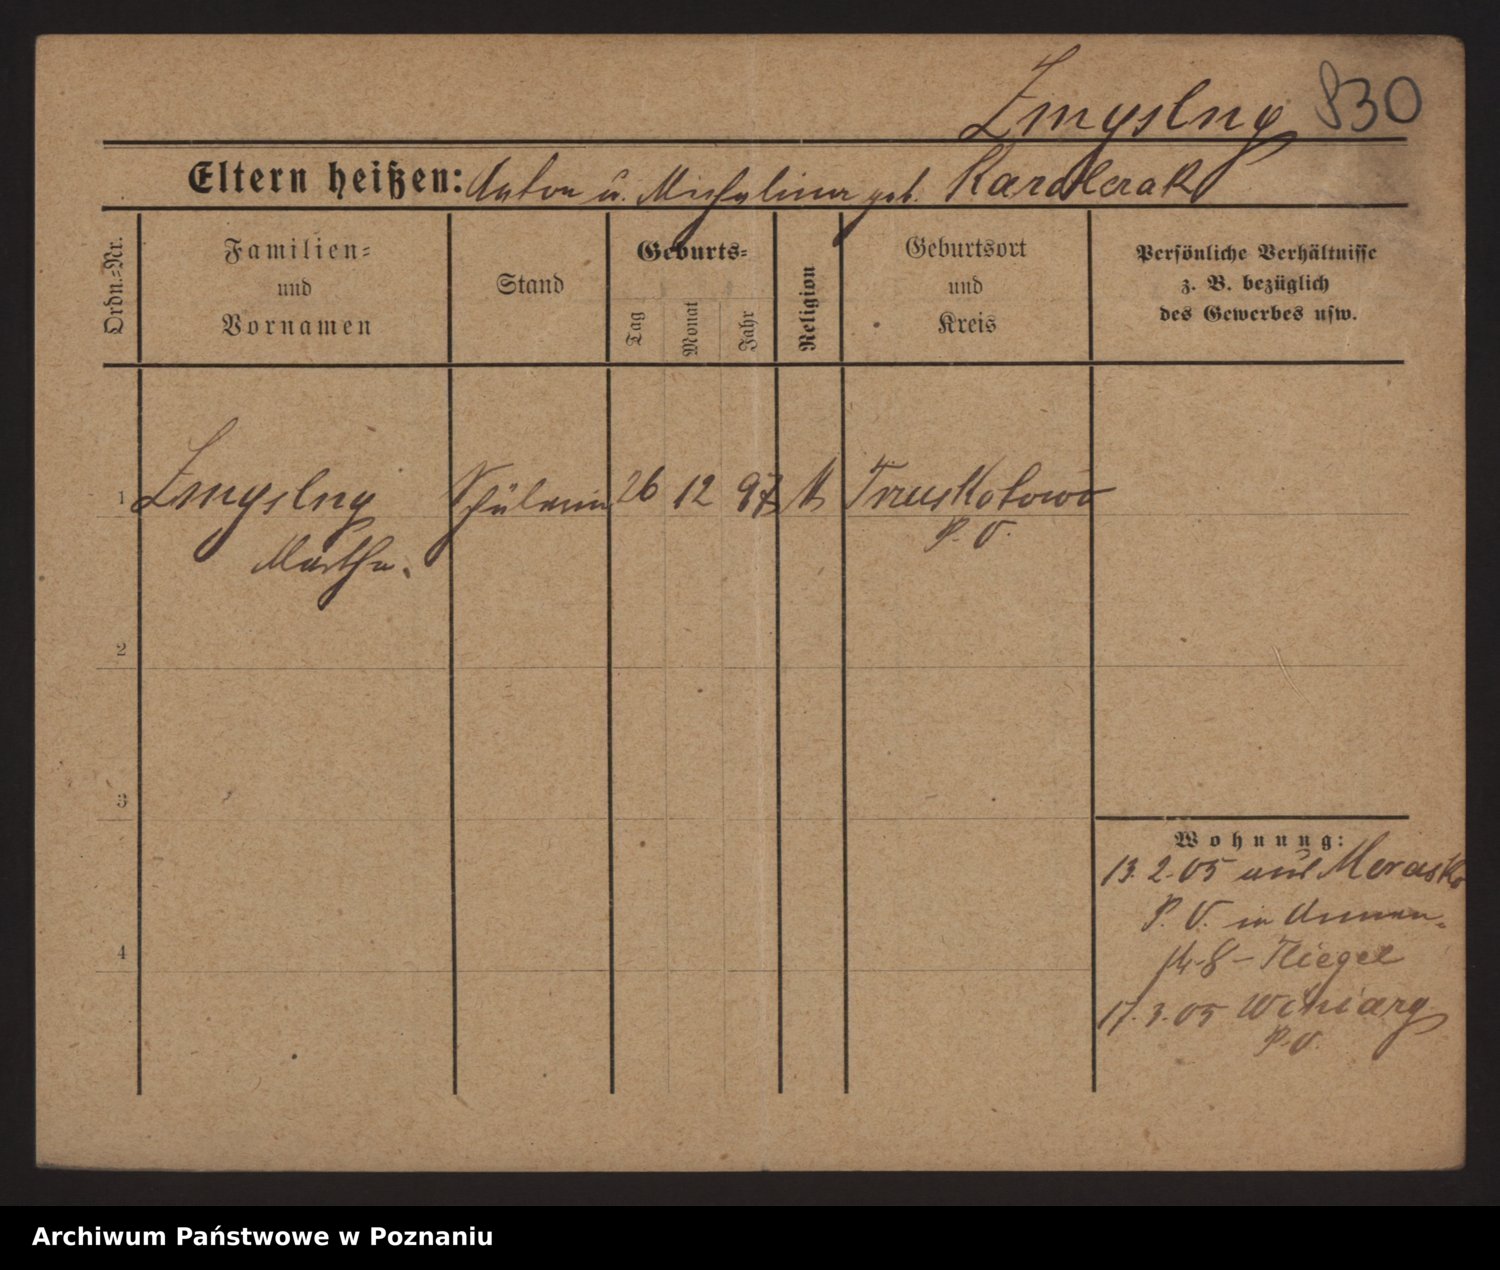 Zmyslny 830
Eltern heißen: Anton u. Michalina geb.
Ordn.-Nr.
Familien-
und
Vornamen
Stand
Geburts-
Tag
Monat
Jahr
Religion
Geburtsort
und
Kreis
Persönliche Verhältnisse
z. B. bezüglich
des Gewerbes usw.
1 Zmyslny Schülerin 26 12 97 k
Martha. P. O.
2
3
4
Wohnung:
13. 2. 05 aus Morasko
P. O. in
14-8-
17. 3. 05 Winiary
P. O.
Archiwum Państwowe w Poznaniu